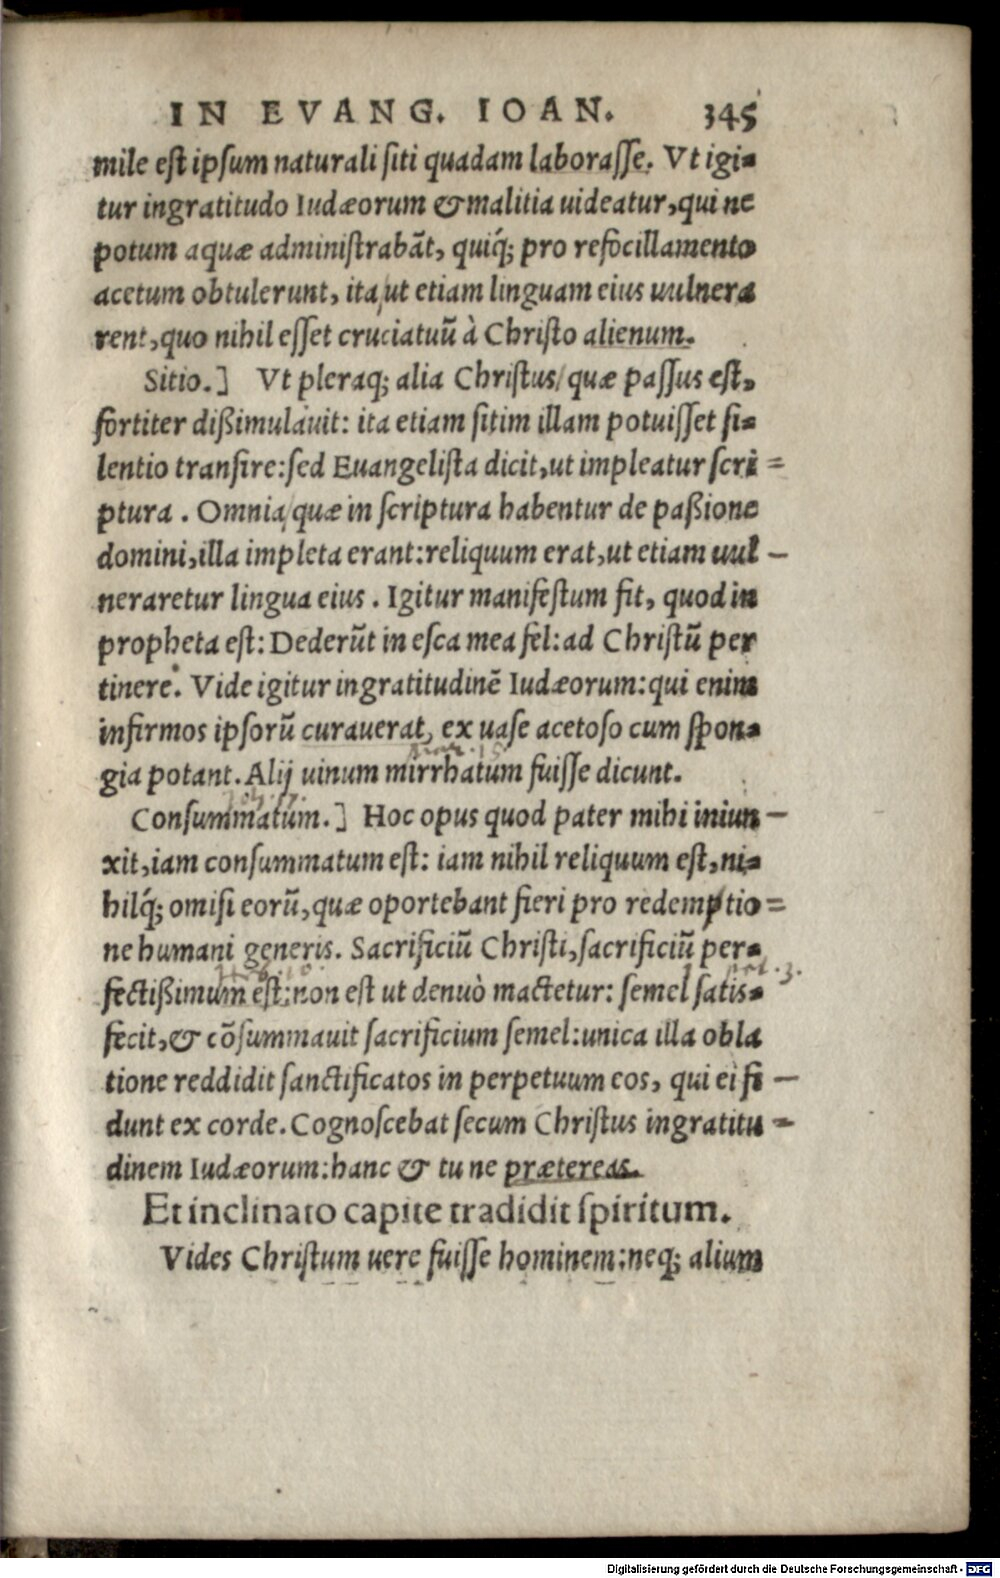 IN EVANG. IOAN. 345
mile est ipsum naturali siti quadam laborasse. Vt igi-
tur ingratitudo Iudæorum & malitia uideatur, qui ne
potum aquæ administrabãt, quiq́; pro refocillamento
acetum obtulerunt, ita ut etiam linguam eius uulnera
rent, quo nihil esset cruciatuũ à Christo alienum.
Sitio.] Vt pleraq; alia Christus quæ passus est,
fortiter dißimulauit: ita etiam sitim illam potuisset si-
lentio transire: sed Euangelista dicit, ut impleatur scri=
ptura. Omnia quæ in scriptura habentur de paßione
domini, illa impleta erant: reliquum erat, ut etiam uul-
neraretur lingua eius. Igitur manifestum fit, quod in
propheta est: Dederũt in esca mea fel: ad Christũ per
tinere. Vide igitur ingratitudinẽ Iudæorum: qui enim
infirmos ipsorũ curauerat, ex uase acetoso cum spon-
gia potant. Alij uinum mirrhatum fuisse dicunt.
Consummatum.] Hoc opus quod pater mihi iniun-
xit, iam consummatum est: iam nihil reliquum est, ni-
hilq́; omisi eorũ, quæ oportebant fieri pro redemptio=
ne humani generis. Sacrificiũ Christi, sacrificiũ per-
fectißimum est: non est ut denuò mactetur: semel satis-
fecit, & cõsummauit sacrificium semel: unica illa obla
tione reddidit sanctificatos in perpetuum eos, qui ei fi-
dunt ex corde. Cognoscebat secum Christus ingratitu-
dinem Iudæorum: hanc & tu ne prætereas.
Et inclinato capite tradidit spiritum.
Vides Christum uere fuisse hominem: neq; alium
Digitalisierung gefördert durch die Deutsche Forschungsgemeinschaft - DFG